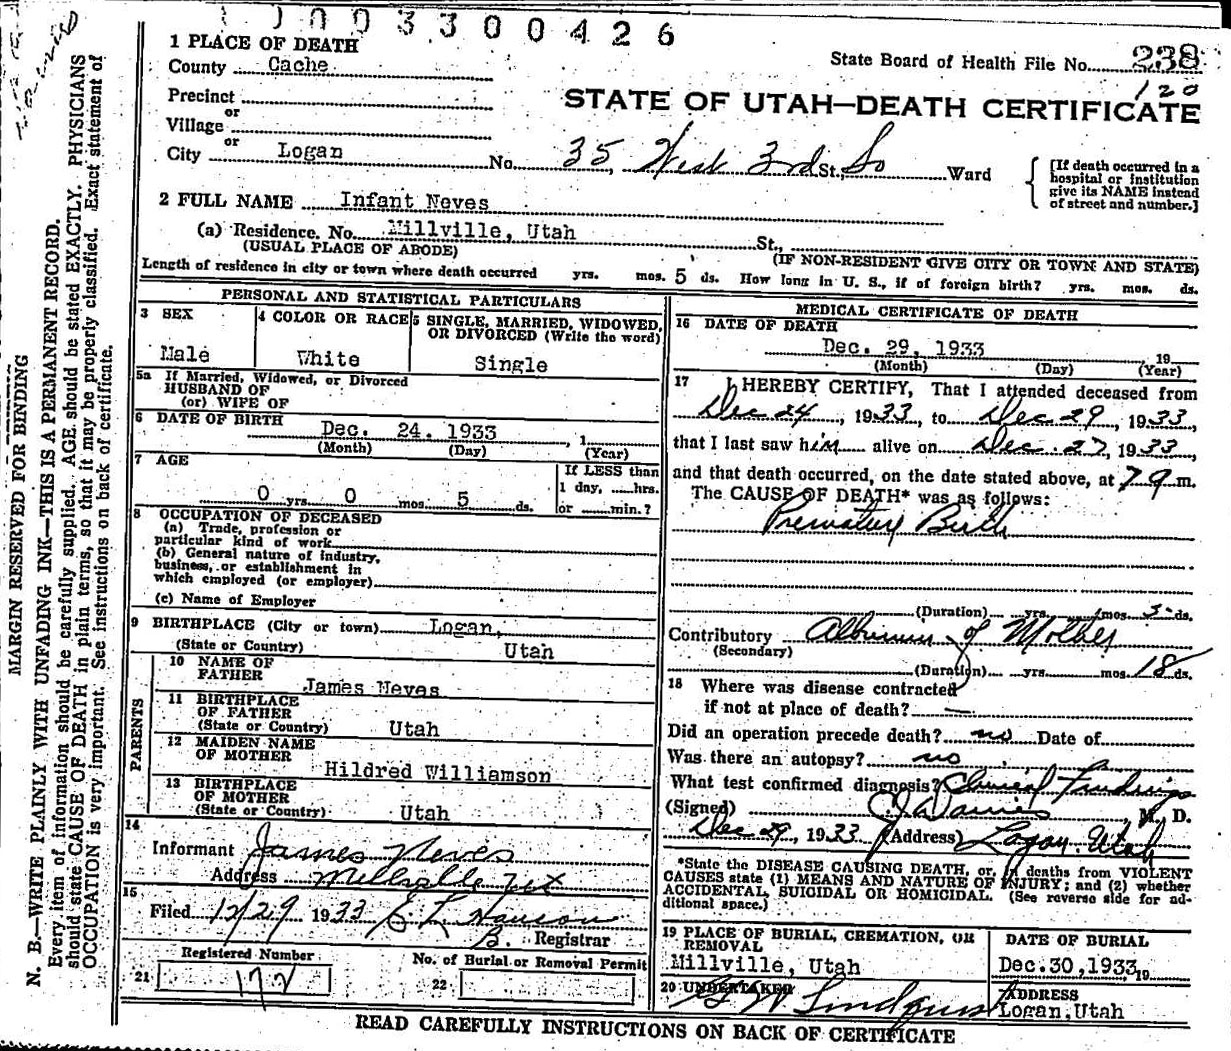 003300426
1 PLACE OF DEATH
County Cache
State Board of Health File No. 238
120
Precinct
or
Village
or
City Logan
STATE OF UTAH—DEATH CERTIFICATE
No. 35 West 3rd St., So Ward
[If death occurred in a
hospital or institution
give its NAME instead
of street and number.]
2 FULL NAME Infant Neves
(a) Residence. No. Millville, Utah St.,
(USUAL PLACE OF ABODE)
(IF NON-RESIDENT GIVE CITY OR TOWN AND STATE)
Length of residence in city or town where death occurred yrs. mos. 5 ds. How long in U. S., if of foreign birth? yrs. mos. ds.
PERSONAL AND STATISTICAL PARTICULARS
3 SEX
Male
4 COLOR OR RACE
White
5 SINGLE, MARRIED, WIDOWED,
OR DIVORCED (Write the word)
Single
5a If Married, Widowed, or Divorced
HUSBAND OF
(or) WIFE OF
6 DATE OF BIRTH
Dec. 24. 1933 , 1
(Month) (Day) (Year)
7 AGE
If LESS than
1 day, ......hrs.
or ......min.?
0 yrs. 0 mos. 5 ds.
8 OCCUPATION OF DECEASED
(a) Trade, profession or
particular kind of work
(b) General nature of industry,
business, or establishment in
which employed (or employer)
(c) Name of Employer
9 BIRTHPLACE (City or town) Logan,
(State or Country) Utah
PARENTS
10 NAME OF
FATHER
James Neves
11 BIRTHPLACE
OF FATHER
(State or Country) Utah
12 MAIDEN NAME
OF MOTHER
Hildred Williamson
13 BIRTHPLACE
OF MOTHER
(State or Country) Utah
14
Informant James Neves
Address Millville Ut
15
Filed 12/29 1933 E L Hanson
B. Registrar
Registered Number
21 172
No. of Burial or Removal Permit
22
MEDICAL CERTIFICATE OF DEATH
16 DATE OF DEATH
Dec. 29, 1933 , 19
(Month) (Day) (Year)
17 I HEREBY CERTIFY, That I attended deceased from
Dec 24, 1933, to Dec 29, 1933,
that I last saw him alive on Dec. 27, 1933,
and that death occurred, on the date stated above, at 7 9 m.
The CAUSE OF DEATH* was as follows:
Premature Birth
(Duration) yrs. mos. 5 ds.
Contributory Albumin of Mother
(Secondary)
(Duration) yrs. mos. 18 ds.
18 Where was disease contracted
if not at place of death? —
Did an operation precede death? no Date of
Was there an autopsy? no
What test confirmed diagnosis? Clinical Findings
(Signed) M. D.
Dec 29, 1933 (Address) Logan Utah
*State the DISEASE CAUSING DEATH, or, in deaths from VIOLENT
CAUSES state (1) MEANS AND NATURE OF INJURY; and (2) whether
ACCIDENTAL, SUICIDAL OR HOMICIDAL. (See reverse side for ad-
ditional space.)
19 PLACE OF BURIAL, CREMATION, OR
REMOVAL
Millville, Utah
DATE OF BURIAL
Dec.30,1933 19
20 UNDERTAKER
Lindquist
ADDRESS
Logan,Utah
READ CAREFULLY INSTRUCTIONS ON BACK OF CERTIFICATE
MARGIN RESERVED FOR BINDING
N. B.—WRITE PLAINLY WITH UNFADING INK—THIS IS A PERMANENT RECORD.
Every item of information should be carefully supplied. AGE should be stated EXACTLY. PHYSICIANS
should state CAUSE OF DEATH in plain terms, so that it may be properly classified. Exact statement of
OCCUPATION is very important. See instructions on back of certificate.